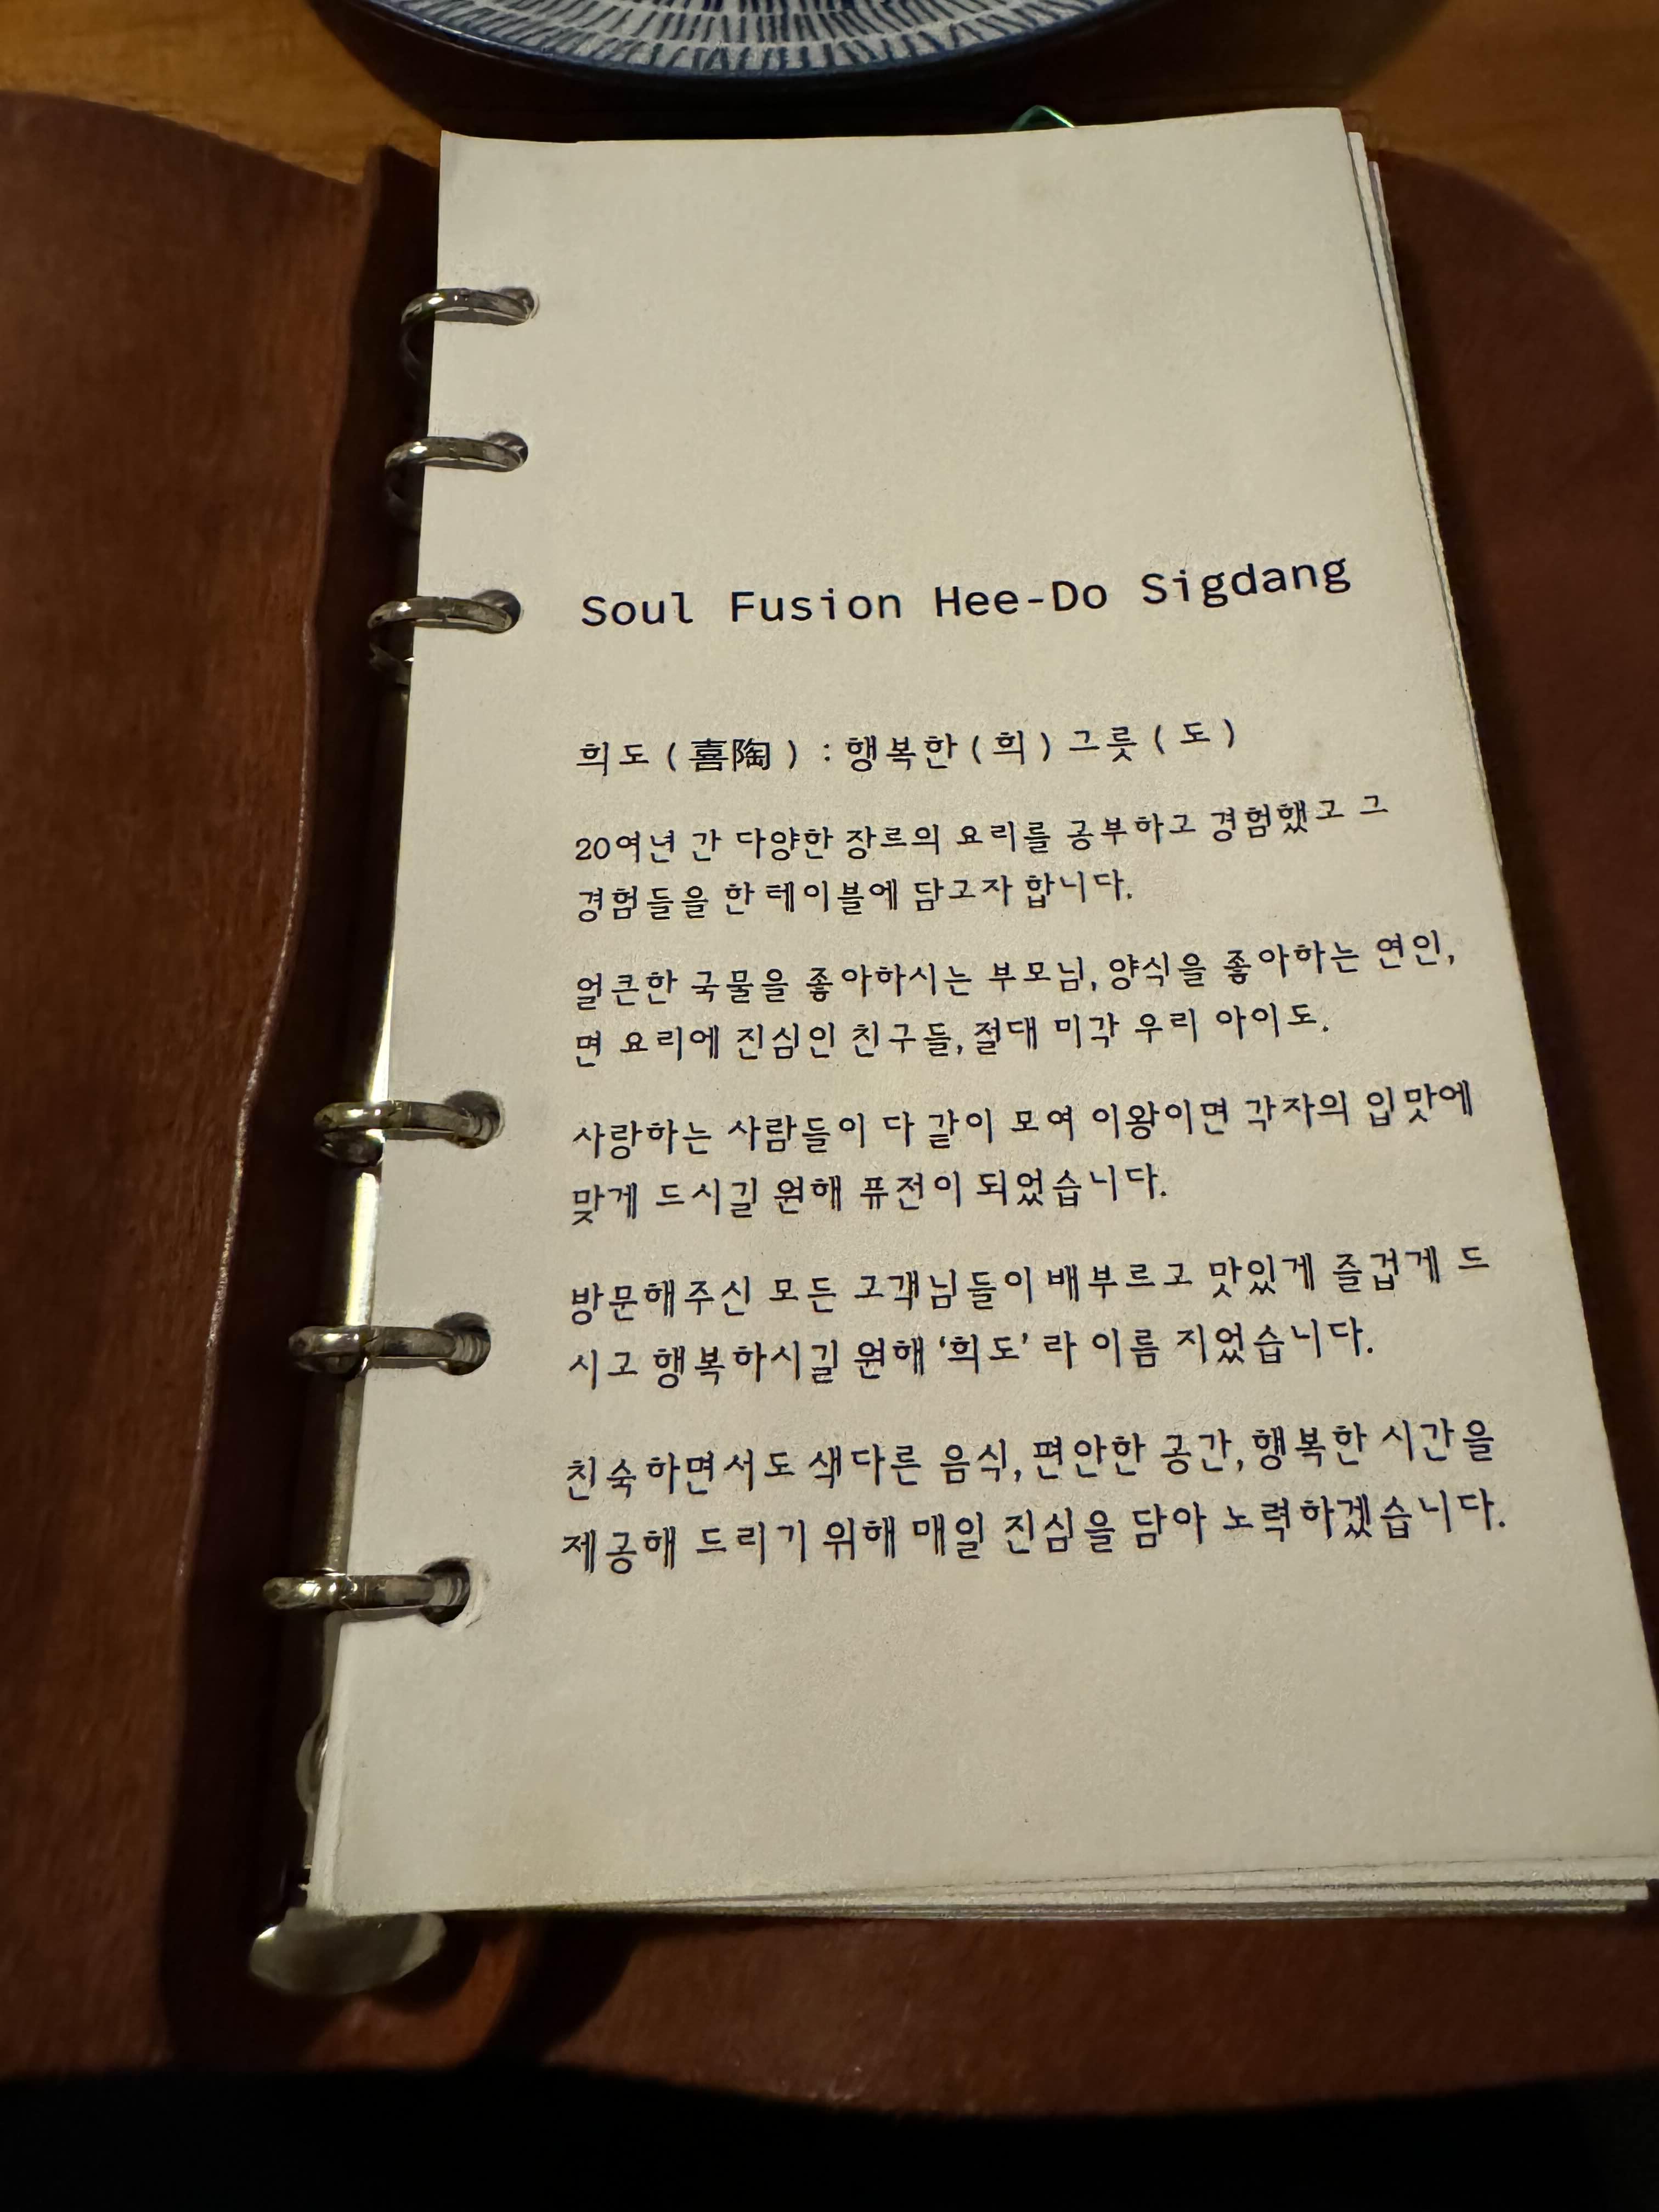 Soul Fusion Hee-Do Sigdang
희도 (喜陶) : 행복한 (희) 그릇 (도)
20여년 간 다양한 장르의 요리를 공부하고 경험했고 그
경험들을 한 테이블에 담고자 합니다.
얼큰한 국물을 좋아하시는 부모님, 양식을 좋아하는 연인,
면 요리에 진심인 친구들, 절대 미각 우리 아이도.
사랑하는 사람들이 다 같이 모여 이왕이면 각자의 입맛에
맞게 드시길 원해 퓨전이 되었습니다.
방문해주신 모든 고객님들이 배부르고 맛있게 즐겁게 드
시고 행복하시길 원해 ‘희도’ 라 이름 지었습니다.
친숙하면서도 색다른 음식, 편안한 공간, 행복한 시간을
제공해 드리기 위해 매일 진심을 담아 노력하겠습니다.